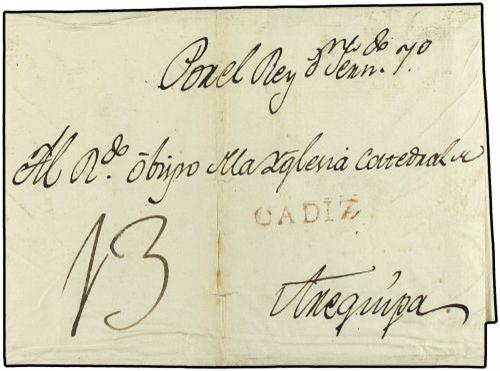 Por el Rey nr̃o Senr. 70
Al Rdo. õbispo Ala Yglesia Cattedral de
CADIZ
13
Arequipa